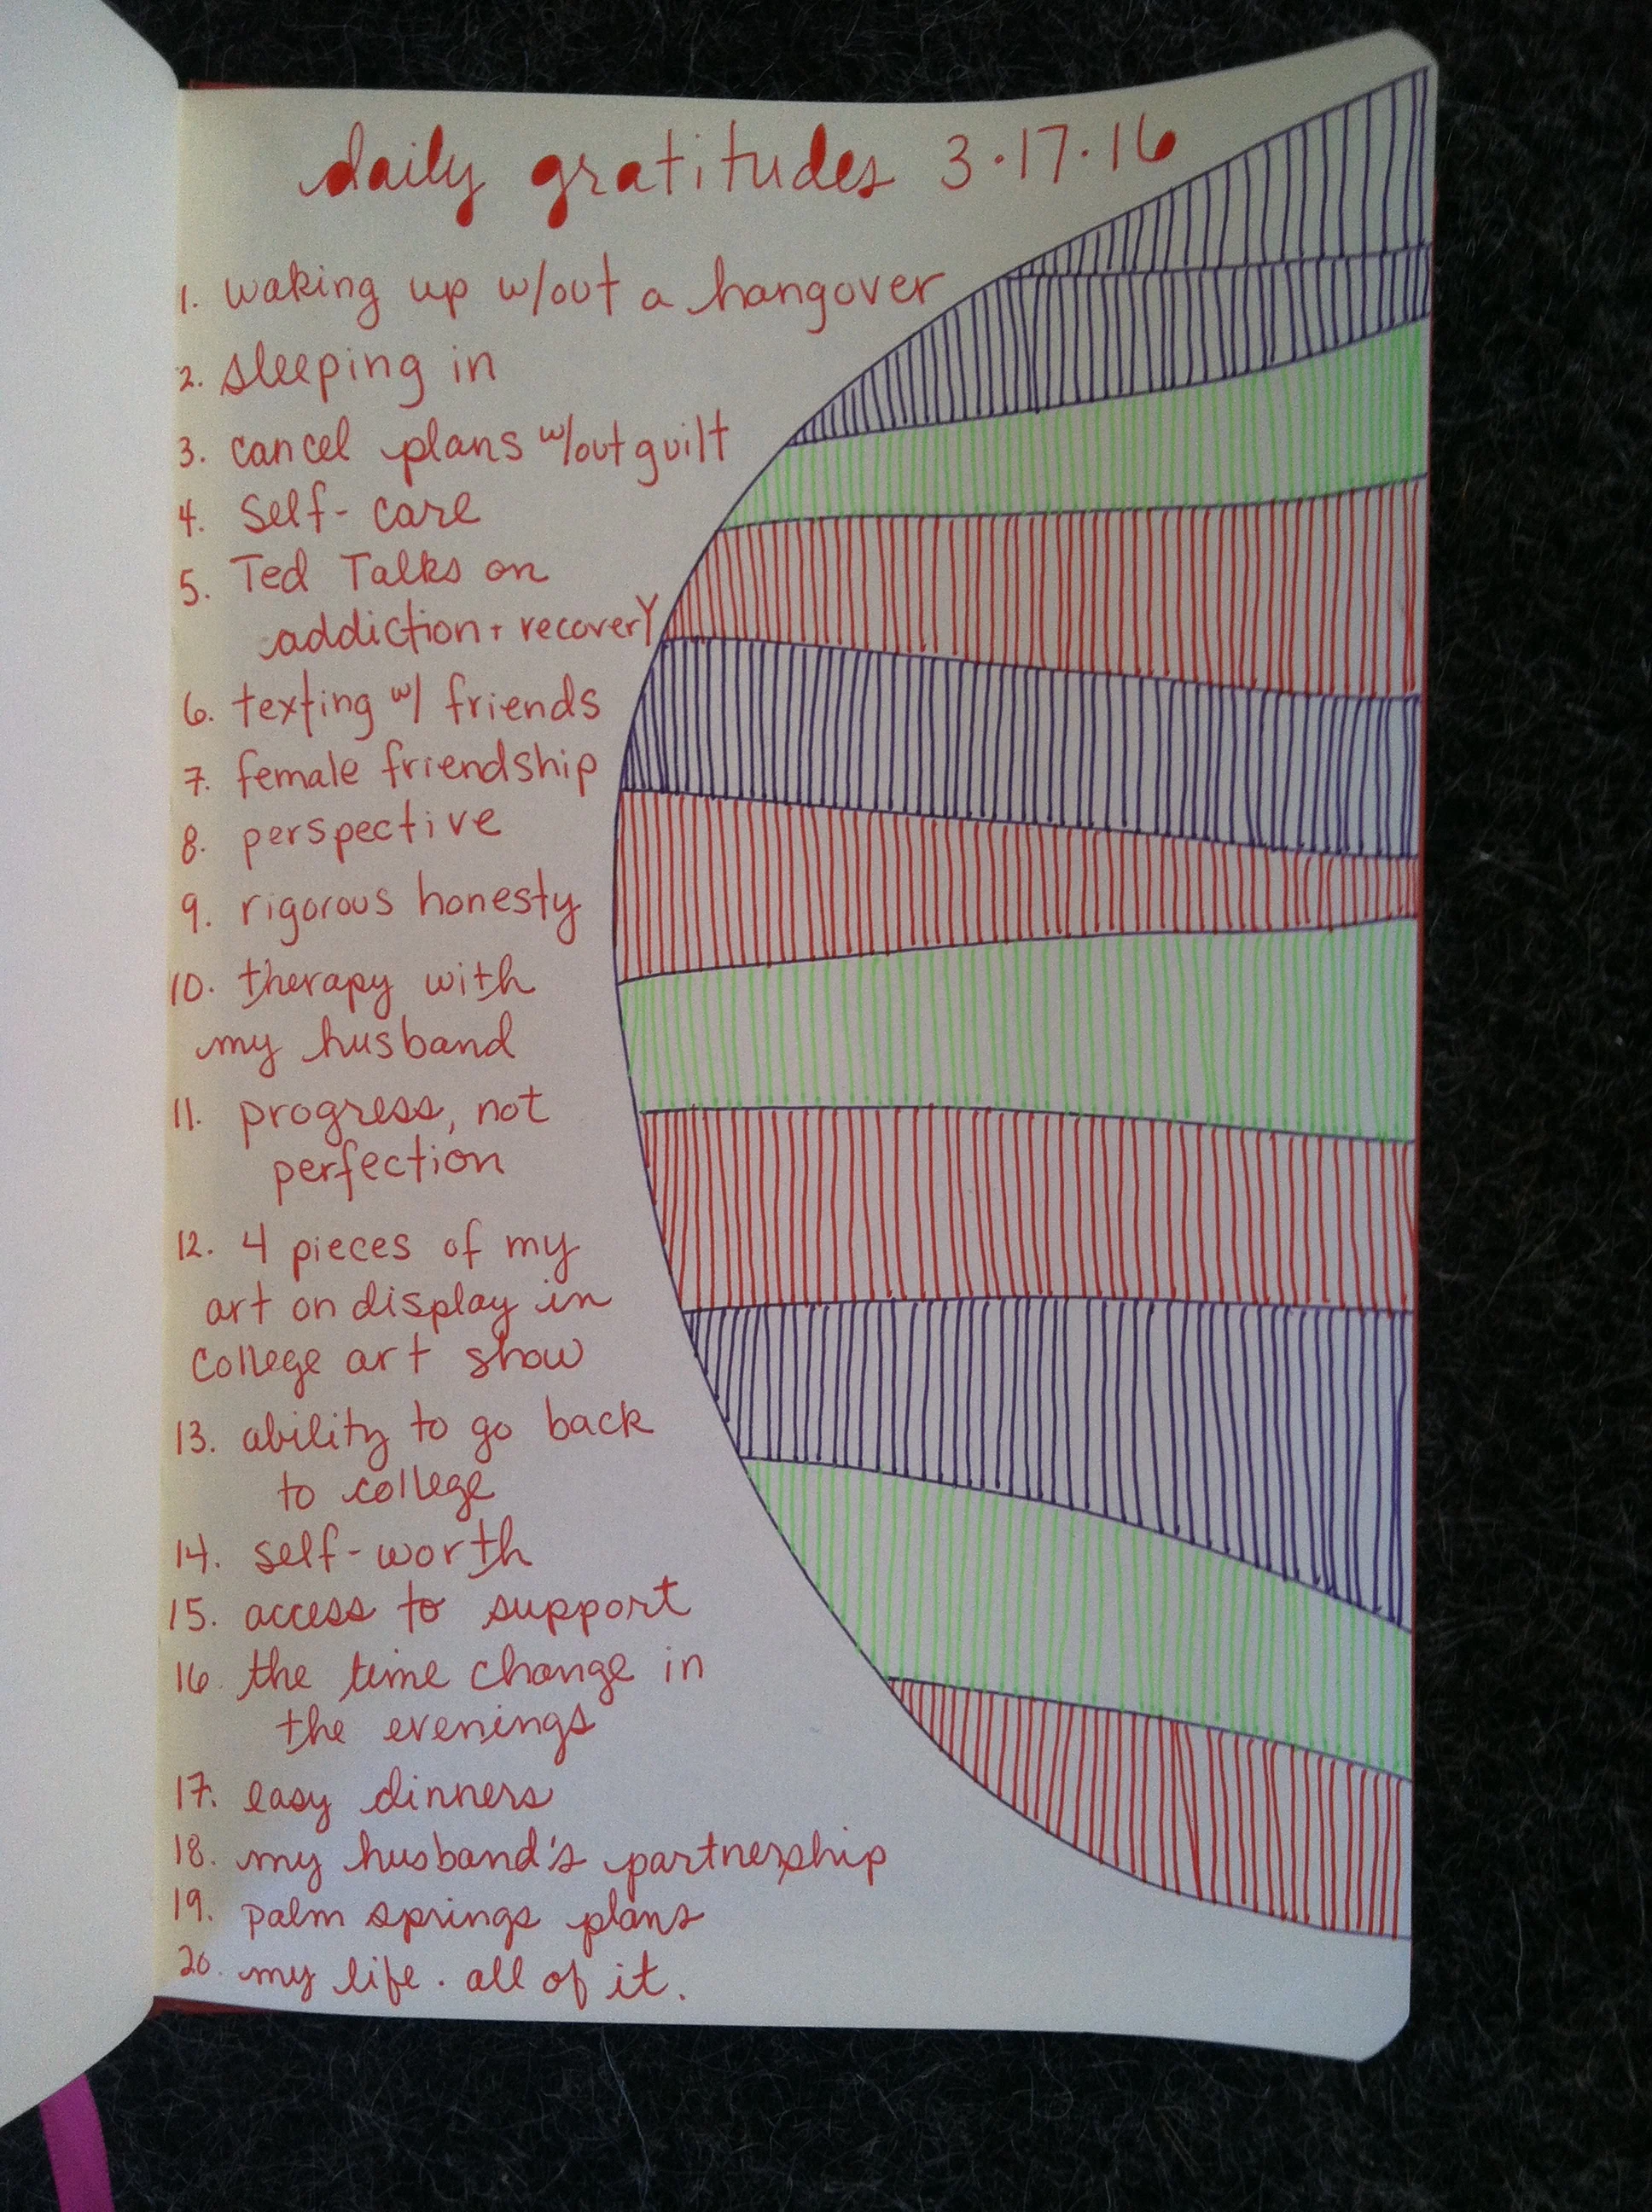 daily gratitudes 3.17.16
1. waking up w/out a hangover
2. sleeping in
3. cancel plans w/out guilt
4. self-care
5. Ted Talks on
addiction + recovery
6. texting w/ friends
7. female friendship
8. perspective
9. rigorous honesty
10. therapy with
my husband
11. progress, not
perfection
12. 4 pieces of my
art on display in
college art show
13. ability to go back
to college
14. self-worth
15. access to support
16. the time change in
the evenings
17. easy dinners
18. my husband's partnership
19. palm springs plans
20. my life. all of it.